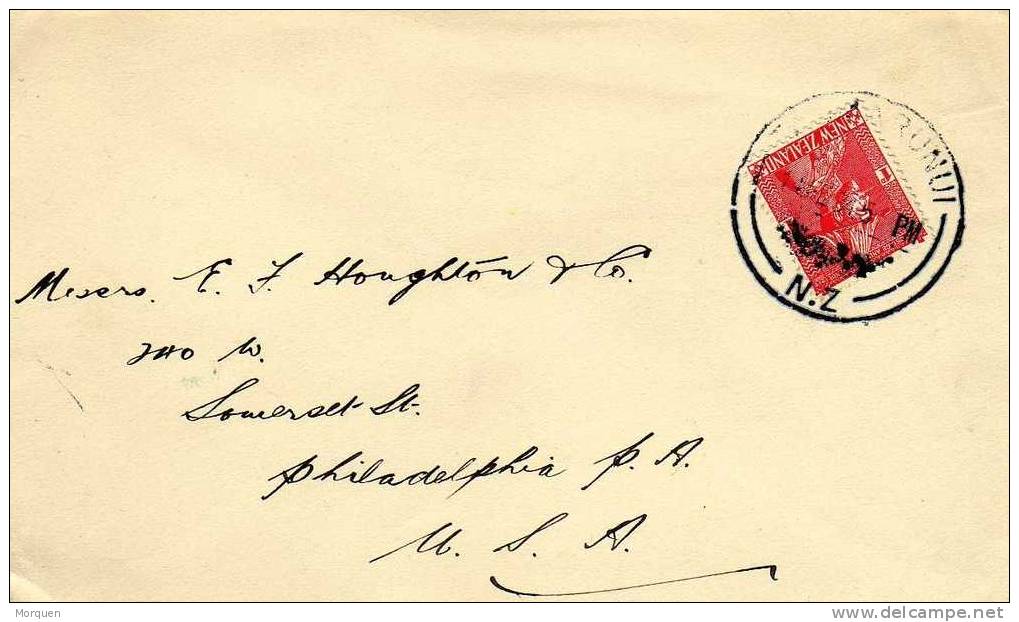 NEW ZEALAND
1
ARUNUI
PM
N.Z
Messrs. E. F. Houghton & Co.
240 W.
Somerset St.
Philadelphia P.A.
U. S. A.
Morquen
delcampe.net